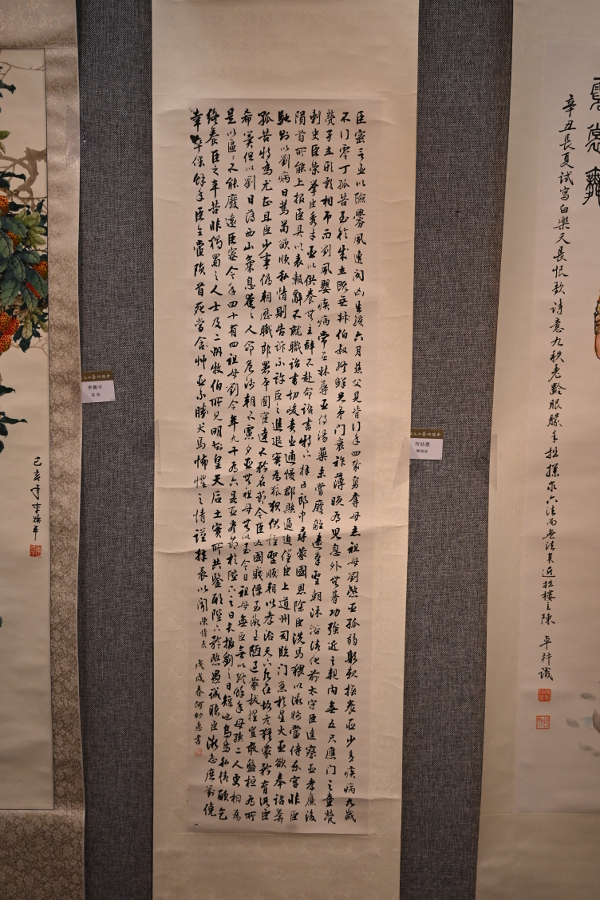 臣密言臣以險釁夙遭閔凶生孩六月慈父見背行年四歲舅奪母志祖母劉愍臣孤弱躬親撫養臣少多疾病九歲
不行零丁孤苦至於成立既無伯叔終鮮兄弟門衰祚薄晚有兒息外無朞功強近之親內無五尺應門之童煢
煢孑立形影相弔而劉夙嬰疾病常在牀蓐臣侍湯藥未嘗廢離逮奉聖朝沐浴清化前太守臣逵察臣孝廉後
刺史臣榮舉臣秀才臣以供養無主辭不赴命詔書特下拜臣郎中尋蒙國恩除臣洗馬猥以微賤當侍東宮非臣
隕首所能上報臣具以表報辭不就職詔書切峻責臣逋慢郡縣逼迫催臣上道州司臨門急於星火臣欲奉詔奔
馳則以劉病日篤苟欲順私情則告訴不許臣之進退實為狼狽伏惟聖朝以孝治天下凡在故老猶蒙矜育況臣
孤苦特為尤甚且臣少事偽朝歷職郎署本圖宦達不矜名節今臣亡國賤俘至微至陋過蒙拔擢豈敢盤桓有所
希冀但以劉日薄西山氣息奄奄人命危淺朝不慮夕臣無祖母無以至今日祖母無臣無以終餘年母孫二人更相為
是以區區不能廢遠臣密今年四十有四祖母劉今年九十有六是臣盡節於陛下之日長報劉之日短也烏鳥私情願乞
終養臣之辛苦非獨蜀之人士及二州牧伯所見明知皇天后土實所共鑒願陛下矜愍愚誠聽臣微志庶劉僥
幸卒保餘年臣生當隕首死當結艸臣不勝犬馬怖懼之情謹拜表以聞 陳情表 戊戌春何幼慕書
辛丑長夏試寫白樂天長恨歌詩意九秩老齡眼矇手拙揉求六法而無法矣近拙樓主陳卓行識
己亥年
何幼慕